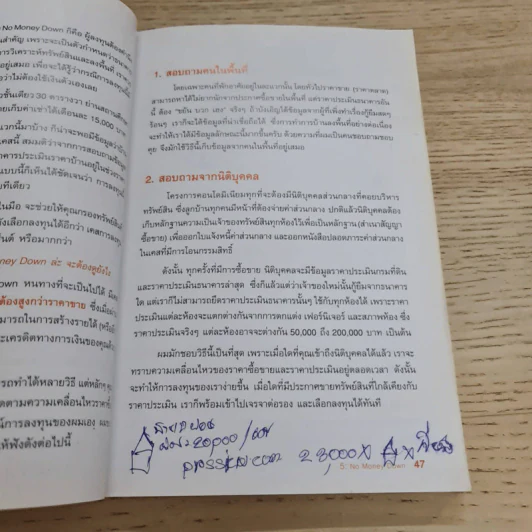 No Money Down ก็คือ ผู้ลงทุนต้อง
สำคัญ เพราะจะเป็นตัวกำหนดว่า
การวิเคราะห์ทรัพย์สินและลงพื้นที่ เรา
อยู่เสมอ เพื่อจะได้รู้ว่ากรณีการลงทุน
ว่าไม่ต้องใช้เงินตัวเองเลย
ชั้นเดียว 30 ตารางวา ย่าน
เก็บค่าเช่าได้เดือนละ 15,000 บาท
แวกนี้มาบ้าง ก็น่าจะพอมีข้อมูล
เคสนี้ สมมติว่าจากการสอบถามข้อมูล
ราคาประเมินธนาคารบ้านอยู่ในช่วง
แบบนี้ก็เห็นได้ชัดเจนว่า การลงทุน
ทีเดียว
ในมือ จะช่วยให้คุณกรองทรัพย์สิน
เลือกลงทุนได้อีกว่า เคสการลงทุน
หรือมากกว่า
Money Down ล่ะ จะต้องดูยังไง
Down หนทางที่จะเป็นไปได้
ต้องสูงกว่าราคาขาย ซึ่งเมื่อ
สามารถในการสร้างรายได้
เครดิตทางการเงินของคุณ
รถทำได้หลายวิธี แต่หลักๆ
ติดตามความเคลื่อนไหวราคา
กรณีการลงทุนของผมเอง
ให้ฟังดังต่อไปนี้
1. สอบถามคนในพื้นที่
โดยเฉพาะคนที่พักอาศัยอยู่ในละแวกนั้น โดยทั่วไปราคาขาย (ราคาตลาด)
สามารถหาได้ไม่ยากนักจากประกาศซื้อขายในพื้นที่ แต่ราคาประเมินธนาคารอัน
นี้ ต้อง "ขยัน บวก เฮง" จริงๆ ถ้าบังเอิญได้ข้อมูลจากผู้ที่เพิ่งทำเรื่องกู้มาสดๆ
ร้อนๆ เราก็จะได้ข้อมูลที่น่าเชื่อถือได้ ซึ่งการทำการบ้านลงพื้นที่อย่างต่อเนื่อง
จะทำให้เราได้มีข้อมูลลักษณะนี้มากขึ้นครับ ด้วยความที่ผมเป็นคนชอบถามชอบ
คุย จึงมักใช้วิธีนี้เก็บข้อมูลจากคนในพื้นที่อยู่เสมอ
2. สอบถามจากนิติบุคคล
โครงการคอนโดมิเนียมทุกที่จะต้องมีนิติบุคคลส่วนกลางที่คอยบริหาร
ทรัพย์สิน ซึ่งลูกบ้านทุกคนมีหน้าที่ต้องจ่ายค่าส่วนกลาง ปกติแล้วนิติบุคคลต้อง
เก็บหลักฐานความเป็นเจ้าของทรัพย์สินทุกห้องไว้เพื่อเป็นหลักฐาน (สำเนาสัญญา
ซื้อขาย) เพื่อออกใบแจ้งหนี้ค่าส่วนกลาง และออกหนังสือปลอดภาระค่าส่วนกลาง
ในเคสที่มีการโอนกรรมสิทธิ์
ดังนั้น ทุกครั้งที่มีการซื้อขาย นิติบุคคลจะมีข้อมูลราคาประเมินกรมที่ดิน
และราคาประเมินธนาคารล่าสุด ซึ่งก็แล้วแต่ว่าเจ้าของใหม่นั้นกู้ยืมจากธนาคาร
ใด แต่เราก็ไม่สามารถยึดราคาประเมินธนาคารนั้นๆ ใช้กับทุกห้องได้ เพราะราคา
ประเมินแต่ละห้องจะแตกต่างกันจากการตกแต่ง เฟอร์นิเจอร์ และสภาพห้อง ซึ่ง
ราคาประเมินจริงๆ แต่ละห้องอาจจะต่างกัน 50,000 ถึง 200,000 บาท เป็นต้น
ผมมักชอบวิธีนี้เป็นที่สุด เพราะเมื่อใดที่คุณเข้าถึงนิติบุคคลได้แล้ว เราจะ
ทราบความเคลื่อนไหวของราคาซื้อขายและราคาประเมินอยู่ตลอดเวลา ดังนั้น
จะทำให้การลงทุนของเราง่ายขึ้น เมื่อใดที่มีประกาศขายทรัพย์สินที่ใกล้เคียงกับ
ราคาประเมิน เราก็พร้อมเข้าไปเจรจาต่อรอง และเลือกลงทุนได้ทันที
20,000
23,000 X
5. No Money Down 47